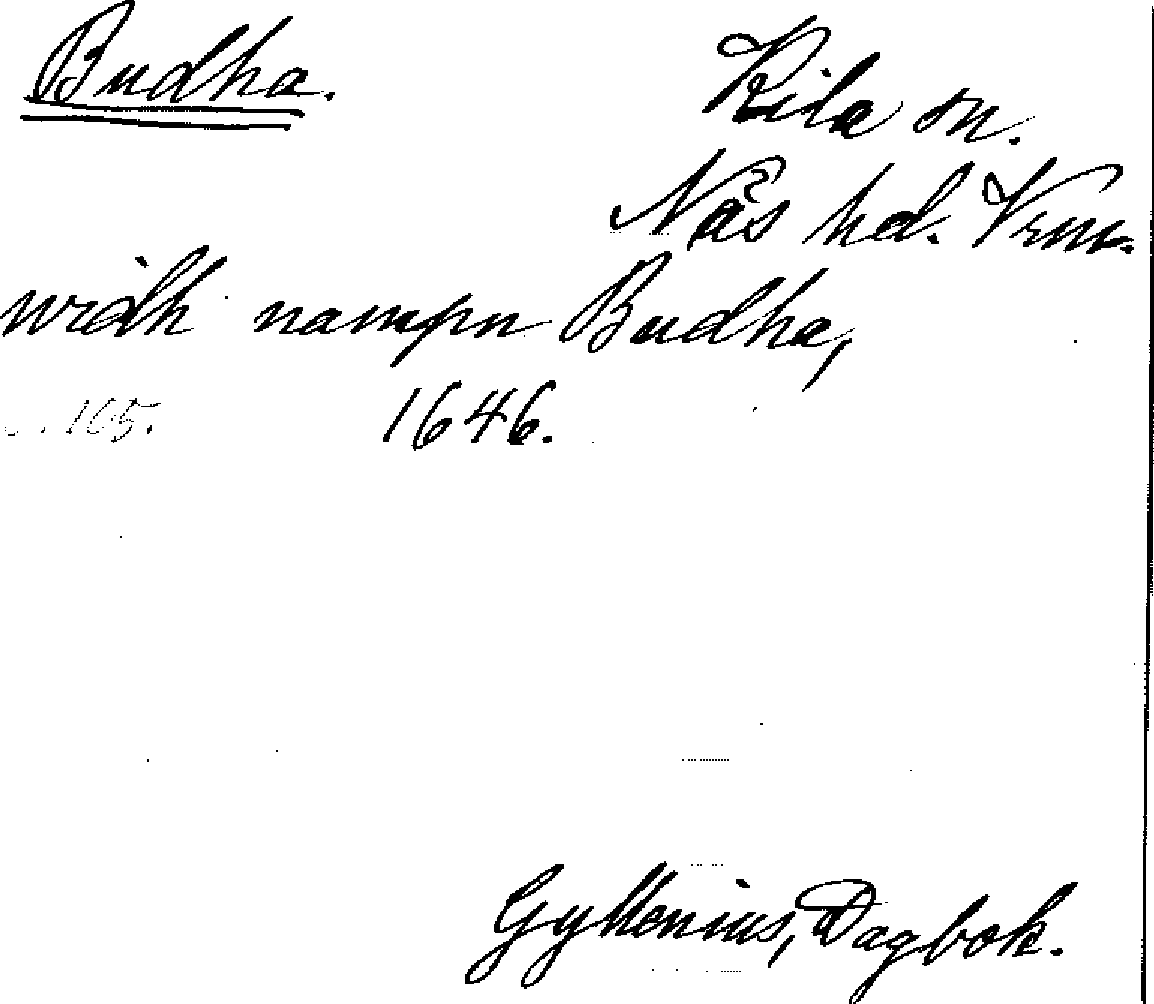 Budha.
Kila sn.
Näs hd. Vrm.
widh nampn Budha,
s. 165. 1646.
Gyllenius, Dagbok.